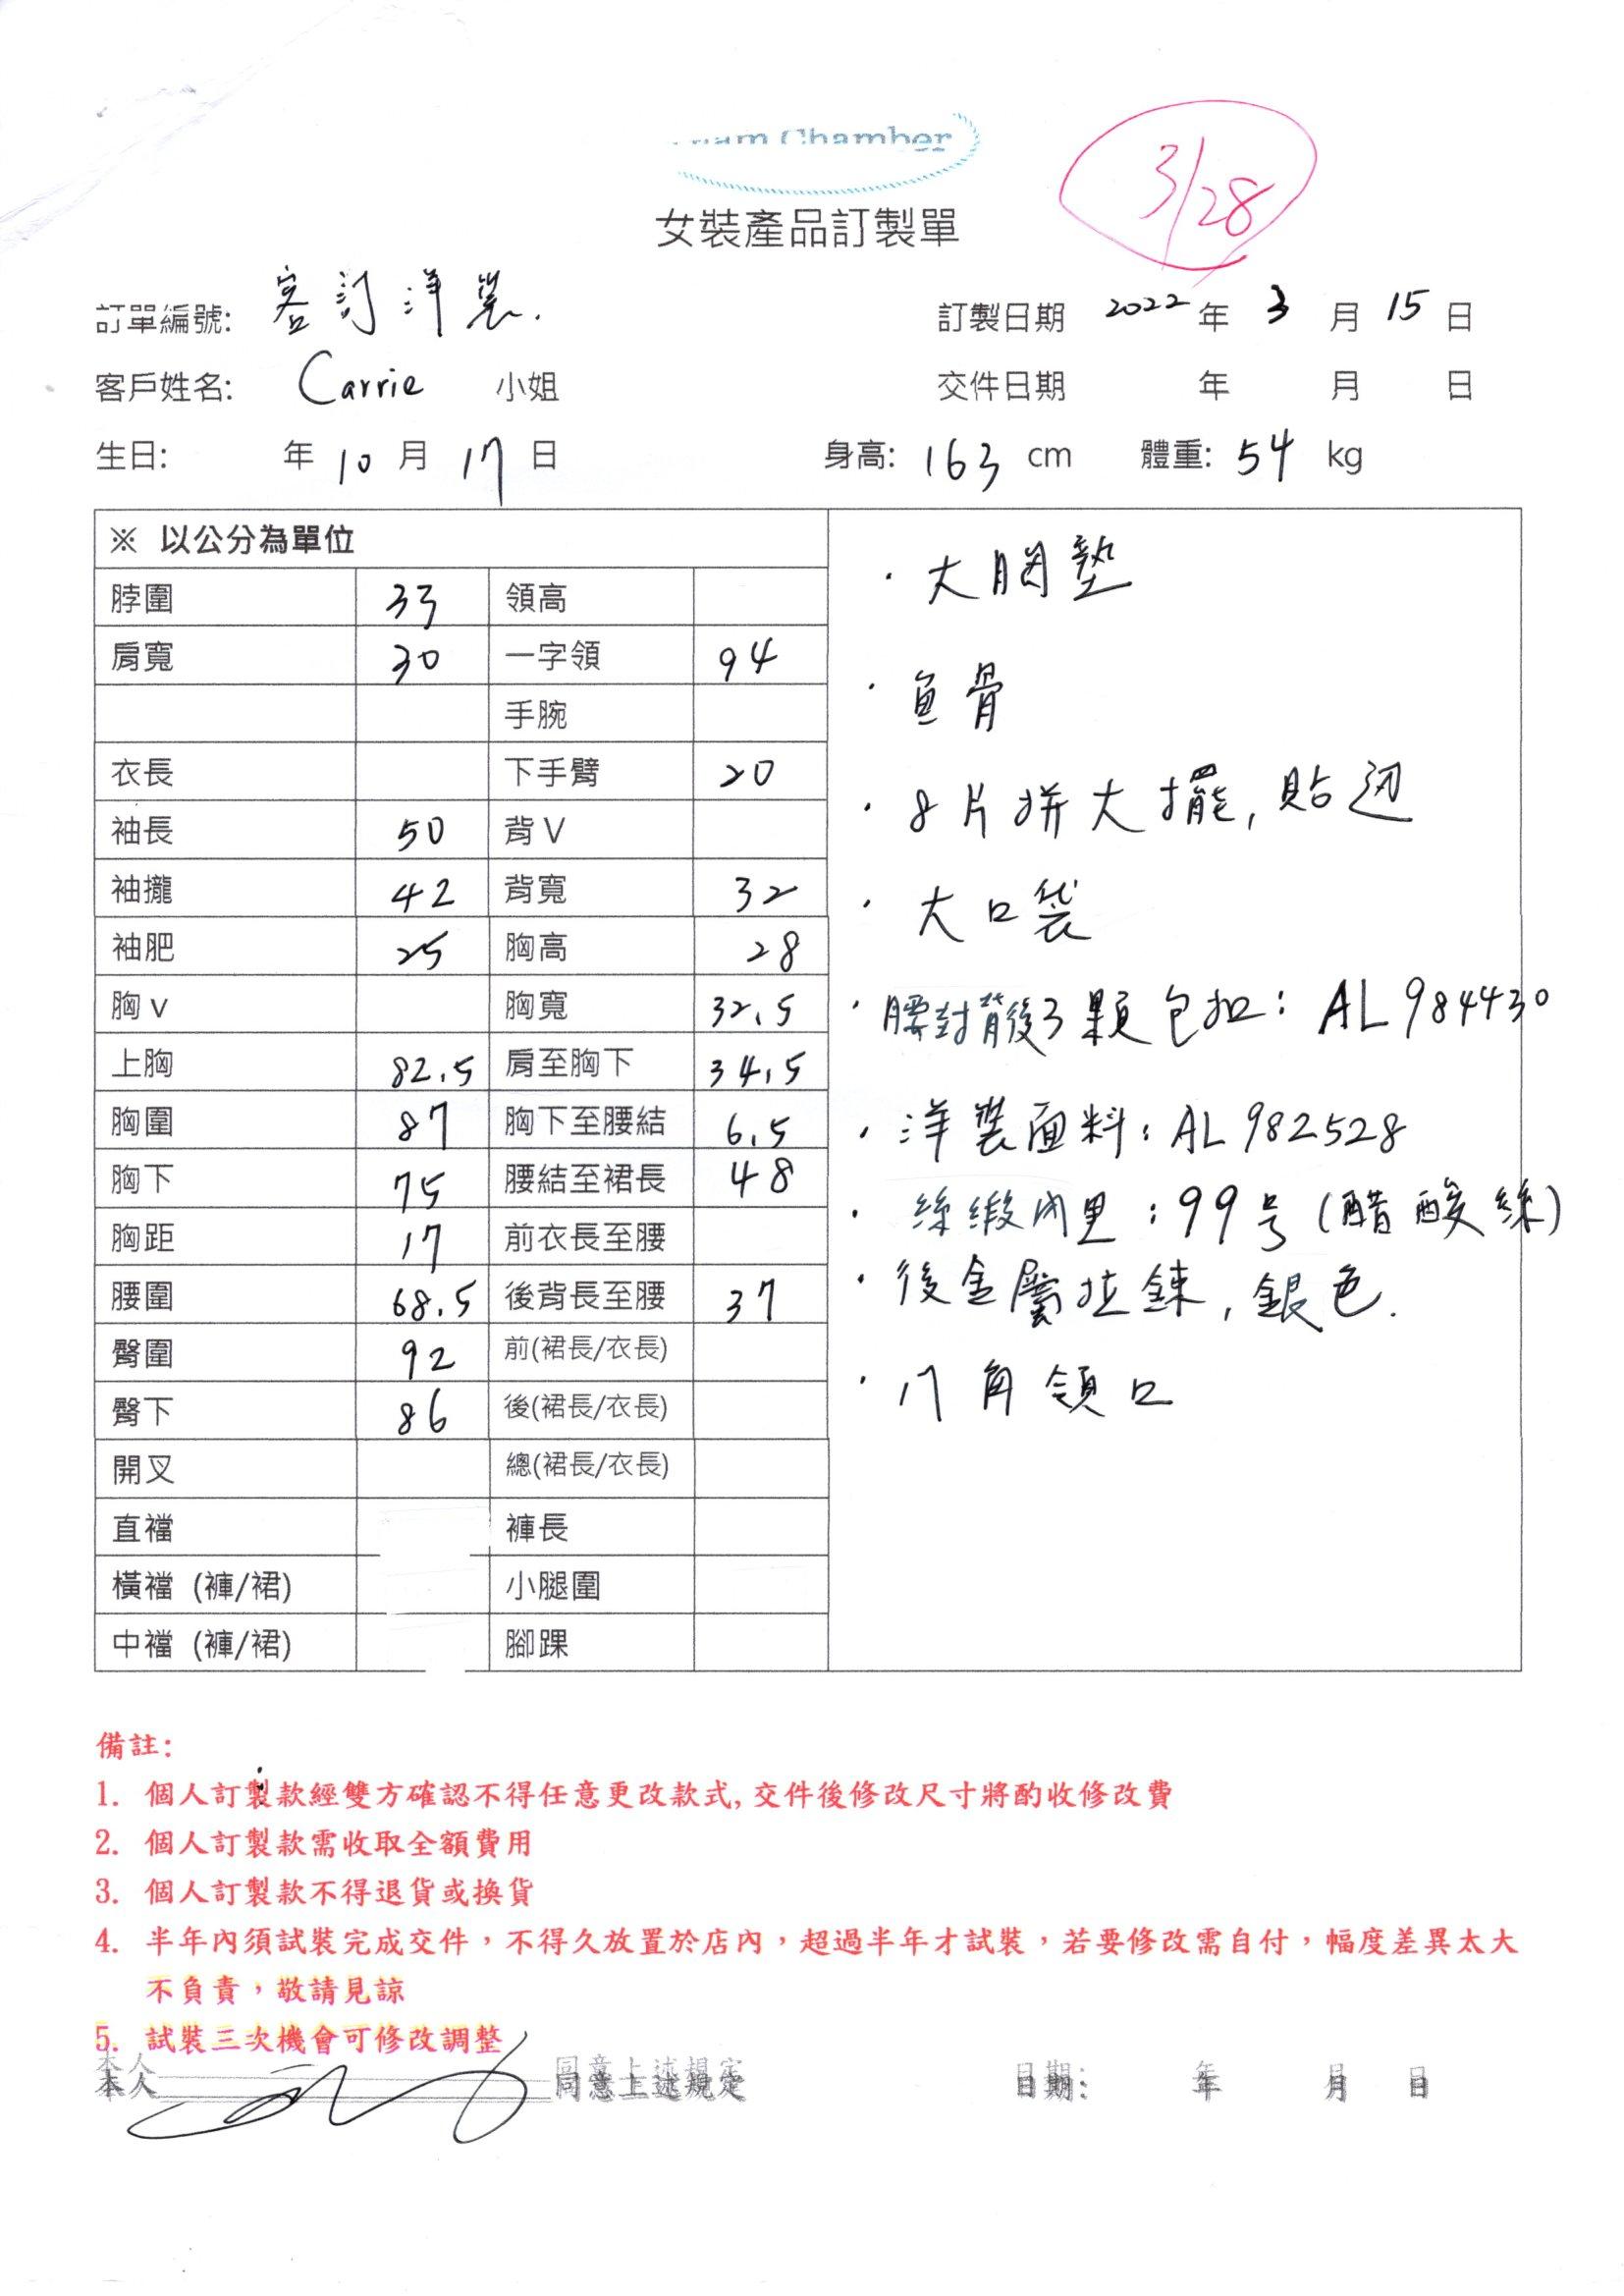 Chamber
3/28
女裝產品訂製單
訂單編號: 客訂洋裝. 訂製日期 2022 年 3 月 15 日
客戶姓名: Carrie 小姐 交件日期 年 月 日
生日: 年 10 月 17 日 身高: 163 cm 體重: 54 kg
※ 以公分為單位
脖圍 33 領高
肩寬 30 一字領 94
手腕
衣長 下手臂 20
袖長 50 背V
袖攏 42 背寬 32
袖肥 25 胸高 28
胸v 胸寬 32.5
上胸 82.5 肩至胸下 34.5
胸圍 87 胸下至腰結 6.5
胸下 75 腰結至裙長 48
胸距 17 前衣長至腰
腰圍 68.5 後背長至腰 37
臀圍 92 前(裙長/衣長)
臀下 86 後(裙長/衣長)
開叉 總(裙長/衣長)
直襠 褲長
橫襠 (褲/裙) 小腿圍
中襠 (褲/裙) 腳踝
· 大胸墊
· 魚骨
· 8片拼大擺, 貼边
· 大口袋
· 腰封背後3顆包扣: AL984430
· 洋裝面料: AL982528
· 絲緞內里: 99号(醋酸絲)
· 後金屬拉鍊, 銀色.
· 八角領口
備註:
1. 個人訂製款經雙方確認不得任意更改款式, 交件後修改尺寸將酌收修改費
2. 個人訂製款需收取全額費用
3. 個人訂製款不得退貨或換貨
4. 半年內須試裝完成交件，不得久放置於店內，超過半年才試裝，若要修改需自付，幅度差異太大
不負責，敬請見諒
5. 試裝三次機會可修改調整
本人 同意上述規定 日期: 年 月 日